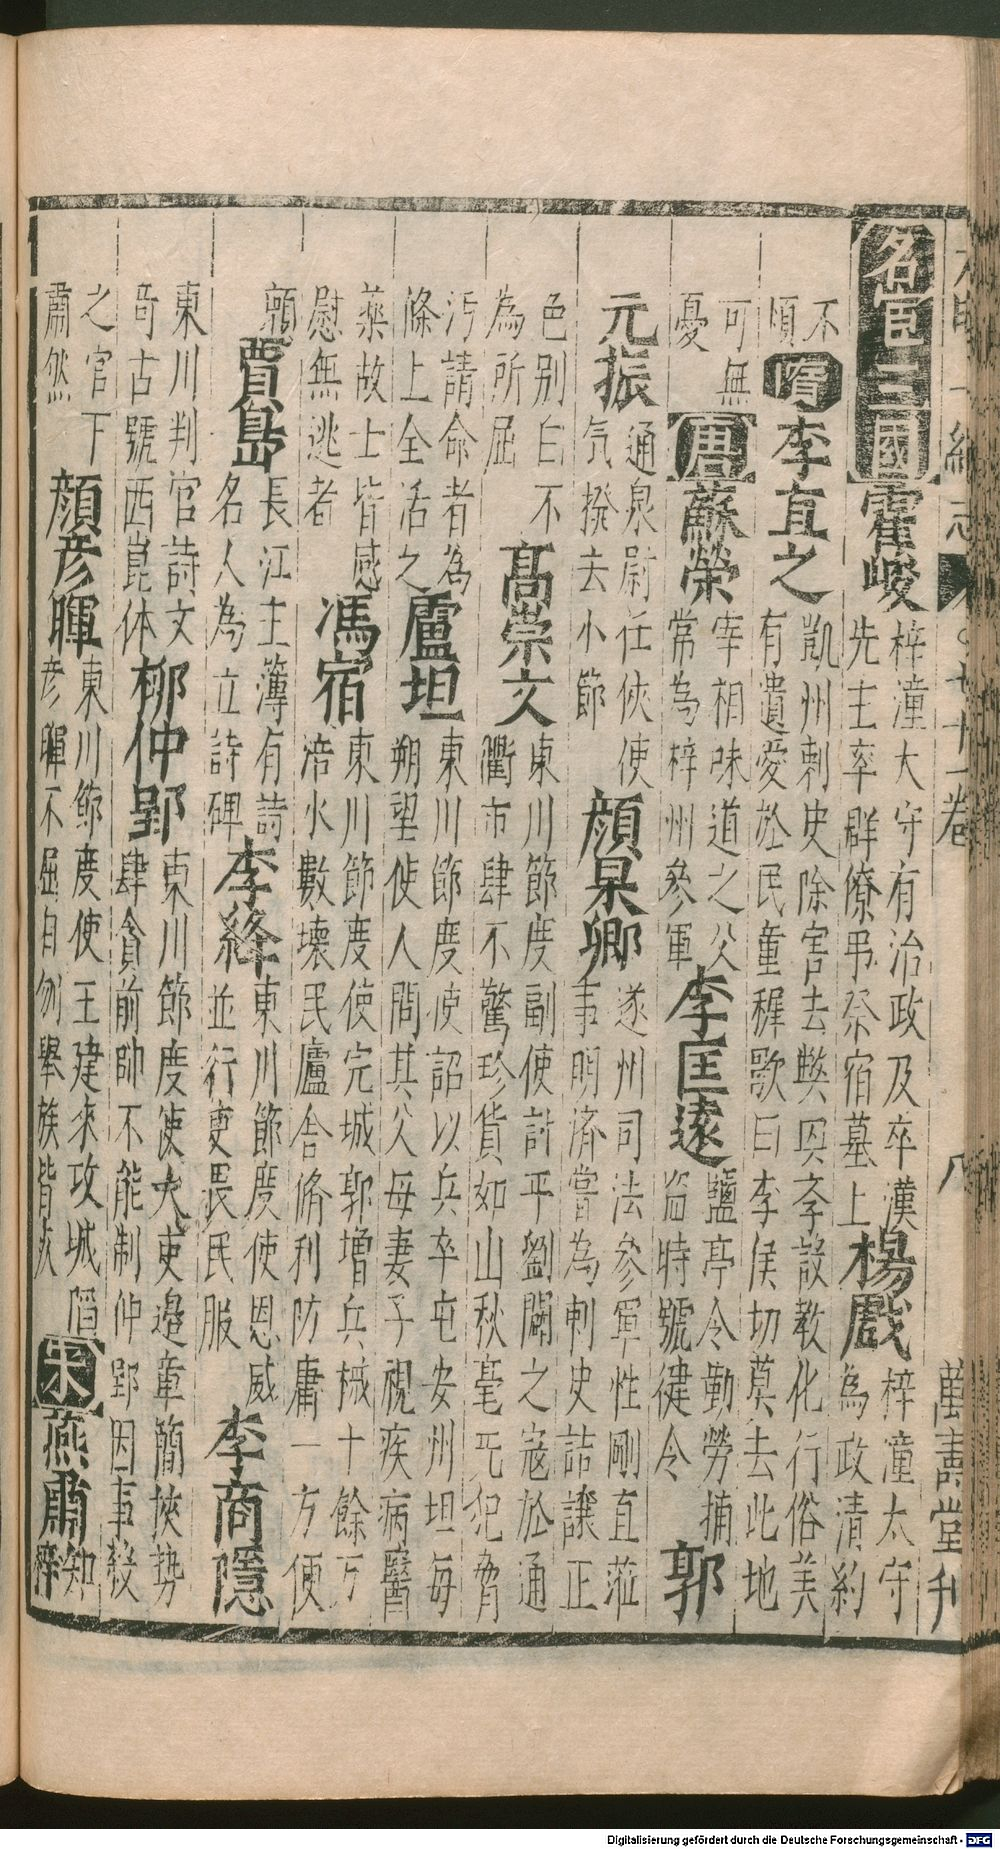 名宦三國霍峻梓潼大守有治政及卒漢
先主率群僚弔祭宿墓上楊戲梓潼太守
為政清約
不
頃隋李直之凱州刺史除害去獘因俗設教化行俗美
有遺愛於民童穉歌曰李侯切莫去此地
可無
憂唐蘇榮宰相味道之父
常為梓州參軍李匡遠鹽亭令勤勞捕
盗時號健令郭
元振通泉尉任俠使
气撥去小節顔杲卿遂州司法參軍性剛直蒞
事明濟嘗為刺史詰讓正
色別白不
為所屈髙崇文東川節度副使討平劉闢之寇於通
衢市肆不驚珍貨如山秋毫无犯脅
汚請命者為
條上全活之盧坦東川節度使詔以兵卒屯安州坦每
朔望使人問其父母妻子視疾病醫
藥故士皆感
慰無逃者馮宿東川節度使完城郭增兵械十餘万
涪水數壊民廬舎脩利防庸一方便
頼
賈島長江主簿有詩
名人為立詩碑李絳東川節度使恩威
並行吏畏民服李商隱
東川判官詩文
竒古號西崑体柳仲郢東川節度使大吏邉章簡挾勢
肆貪前帥不能制仲郢因事殺
之官下
肅然顔彦暉東川節度使王建來攻城陷
彦暉不屈自刎舉族皆死宋燕肅知
梓
七十一卷
八
萬壽堂刊
Digitalisierung gefördert durch die Deutsche Forschungsgemeinschaft - DFG